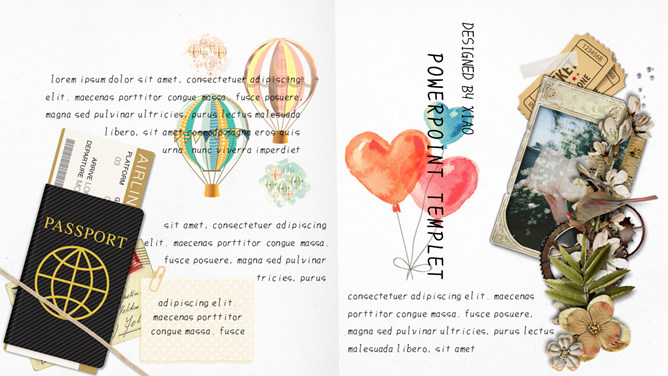 lorem ipsum dolor sit amet, consectetuer adipiscing
elit. maecenas porttitor congue massa. fusce posuere,
magna sed pulvinar ultricies, purus lectus malesuada
libero, sit amet commodo magna eros quis
urna. nunc viverra imperdiet
AIRLIN
PLATFORM
03
ARRIVE LO
DEPARTURE
PASSPORT
sit amet, consectetuer adipiscing
elit. maecenas porttitor congue massa.
fusce posuere, magna sed pulvinar
tricies, purus
adipiscing elit.
maecenas porttitor
congue massa. fusce
DESIGNED BY XIAO
POWERPOINT TEMPLET
1234568
consectetuer adipiscing elit. maecenas
porttitor congue massa. fusce posuere,
magna sed pulvinar ultricies, purus lectus
malesuada libero, sit amet